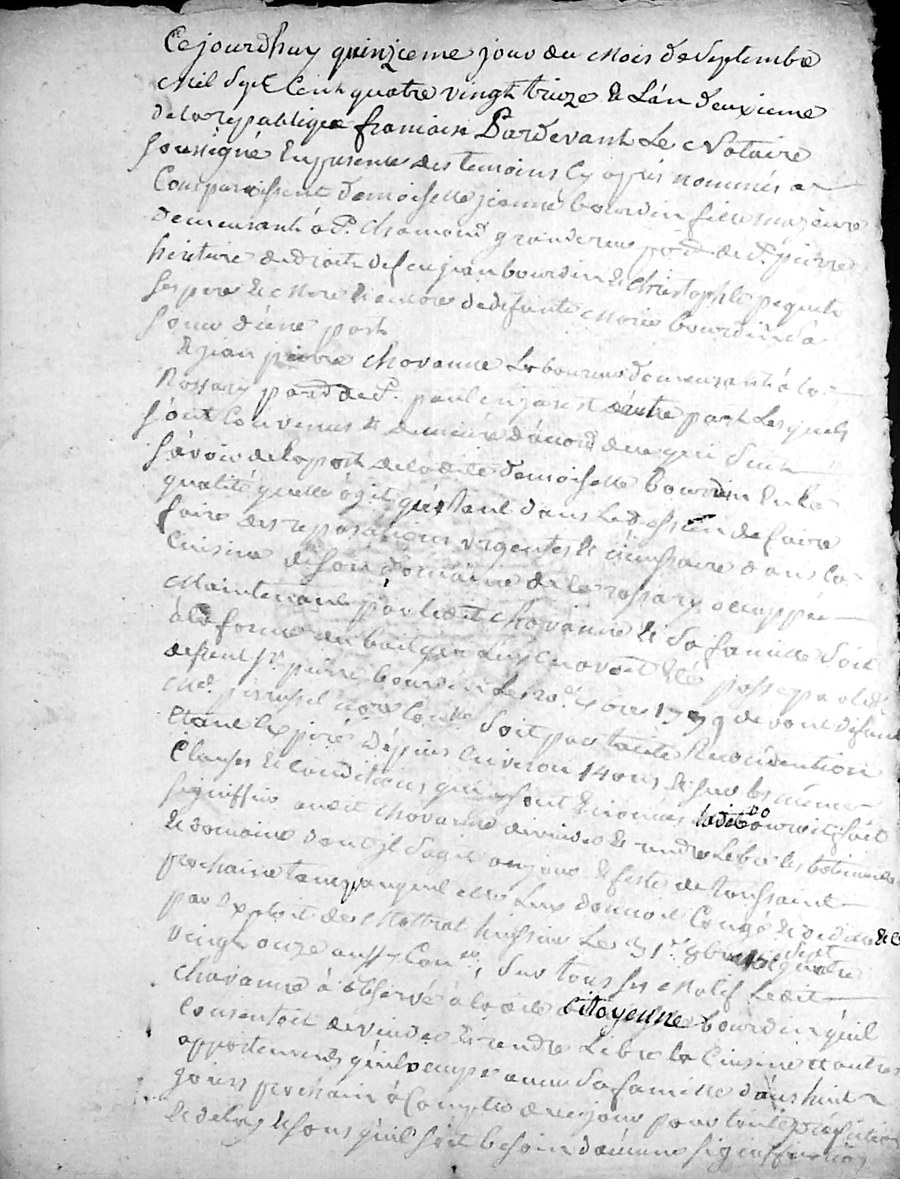 Cejourdhuy quinzieme jour du mois de Septembre
Mil Sept Cent quatre vingt treize & L'an deuxieme
de la republique francoise Pardevant Le Notaire
Soussigné En presence des temoins Cy apres nommés
Comparoissent demoiselle jeanne bourdin fille majeure
demeurant à St. Chamond grande rue de St. pierre
heritiere de droit de feu jean bourdin & Christophle
Ses pere & Mere & encore de defunte Marie bourdin Sa
Soeur d'une part
& jean pierre Chovanne Laboureur demeurant à la
Rossary St. paul en jarest d'autre part Lesquels
Sont Convenus & demeuré d'acord de ce qui Suit
Sávoir de la part de la dite demoiselle bourdin En la
qualité quelle ágit quéstant dans Le dessein de faire
faire des reparations urgentes & nécessaire dans la
Cuisine de Son domaine de la rossary occuppée
Maintenant par Ledit Chovanne & Sa famille Soit
à la forme du bail qui Luy En avoit été passé par led.
defunt Sr. pierre bourdin Le 20e. 1779 devant défunt
Me. Nore Soit par tacite Reconduction
Etant Expiré Dépuis Environ 14 ans & Sur les mémes
Clauses & Conditions qui y Sont Enoncées fait
Signiffier audit Chovanne de vuider & rendre Libre les batiments
& domaine dont il S'agit au jour & feste de Toussaint
prochaine tems auquel elle Luy donnoit Congé &
par Exploit de Mottrat huissier Le 31e. 8bre Sept quatre
veingt onze Sur tous Ses Motif Ledit
Chavanne à observé à la dite Citoyenne bourdin qu'il
Consentoit de vuider & rendre Libre la Cuisine & autres
appartements qu'il occupe avec Sa famille dans huit
jours prochain à Compter de ce jour pour toute préfiction
& delay & Sans qu'il Soit besoin d'aucune Signiffication